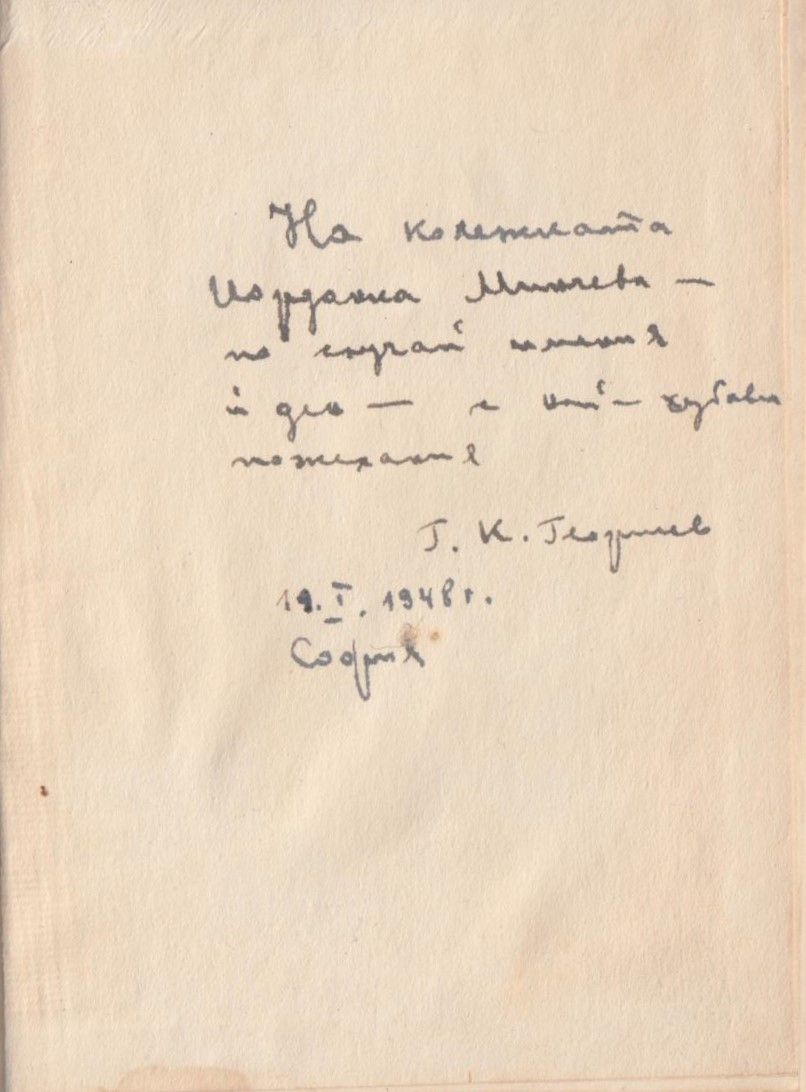 На колежката
Йорданка Минчева —
по случай имения
ѝ ден — с най-хубави
пожелания
Г. К. Георгиев
19. I. 1948 г.
София